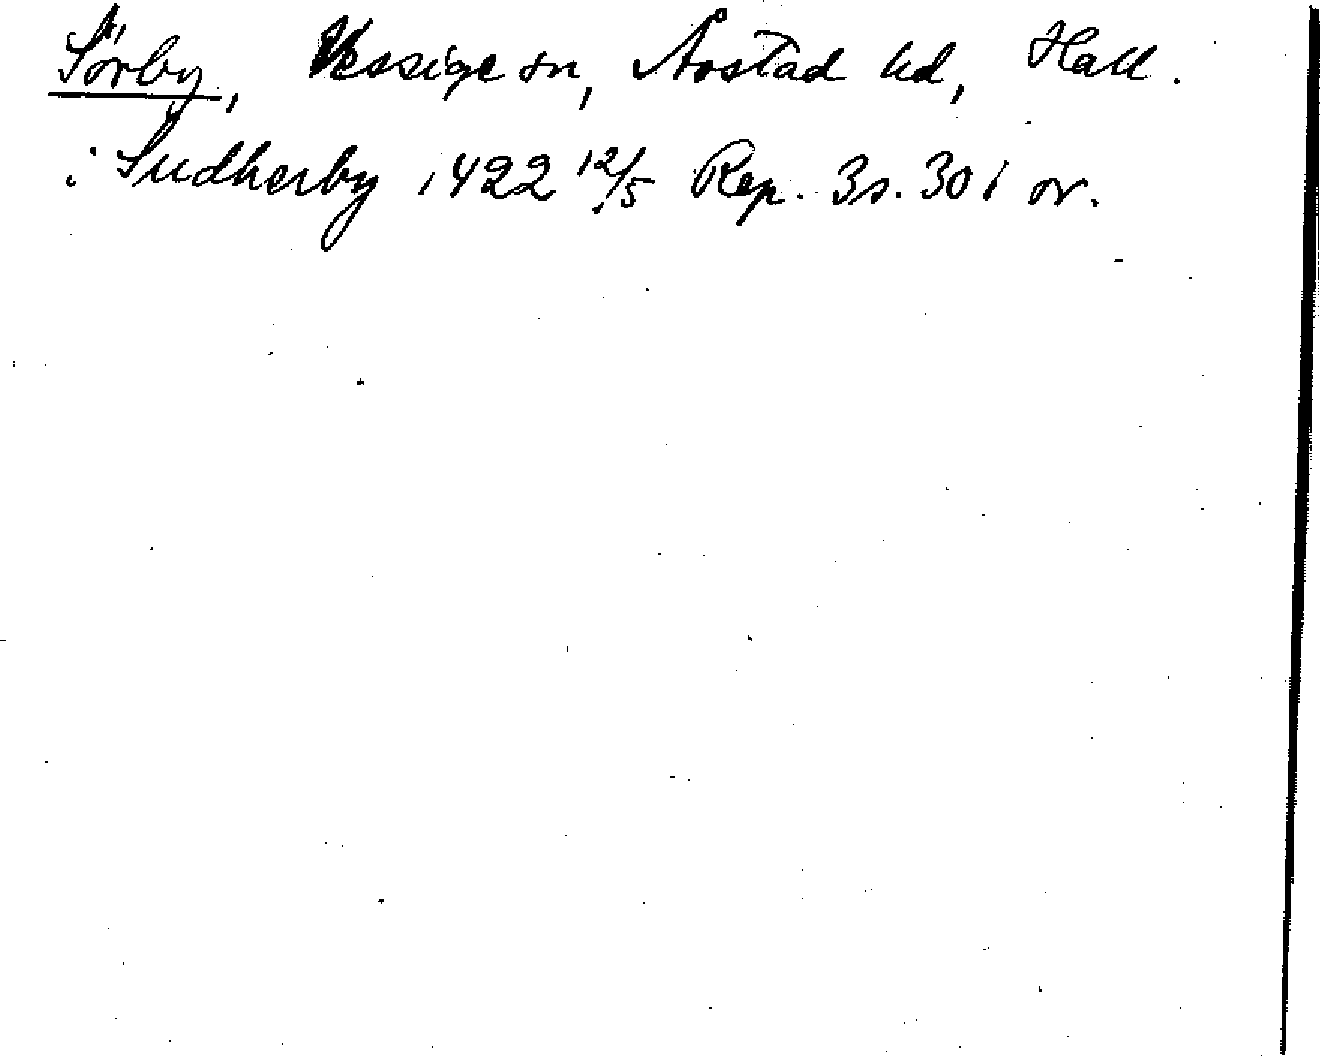 Sörby, Vessige sn, Årstad hd, Hall.
i Sudherby 1422 12/5 Rep. 3 s. 301 or.